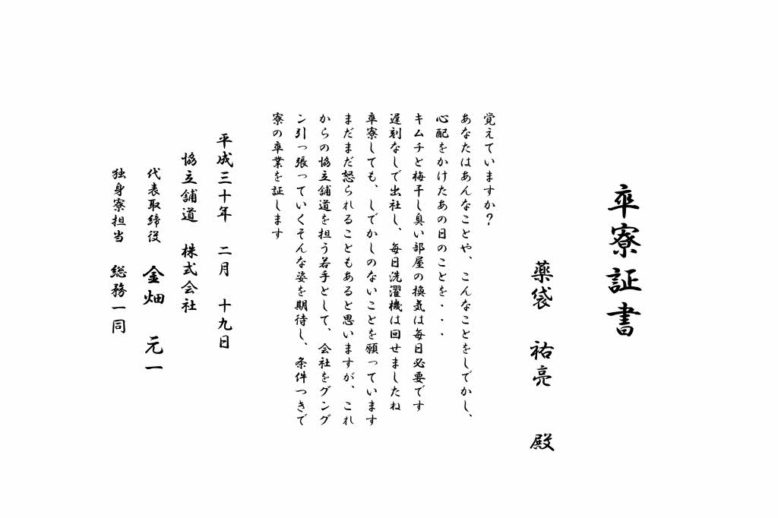 卒寮証書
薬袋　祐亮　殿
覚えていますか？
あなたはあんなことや、こんなことをしでかし、
心配をかけたあの日のことを・・・
キムチと梅干し臭い部屋の換気は毎日必要です
遅刻なしで出社し、毎日洗濯機は回せましたね
卒寮しても、しでかしのないことを願っています
まだまだ怒られることもあると思いますが、これ
からの協立舗道を担う若手として、会社をグング
ン引っ張っていくそんな姿を期待し、条件つきで
寮の卒業を証します
平成三十年　二月　十九日
協立舗道　株式会社
代表取締役　金畑　元一
独身寮担当　総務一同